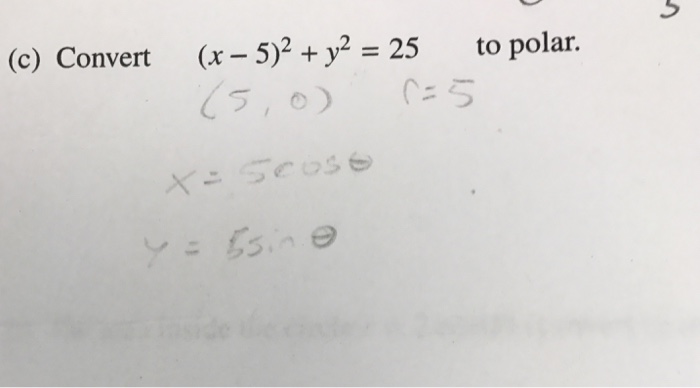 (c) Convert (x – 5)² + y² = 25 to polar.
(5, 0) r = 5
x = 5cosθ
y = 5sinθ